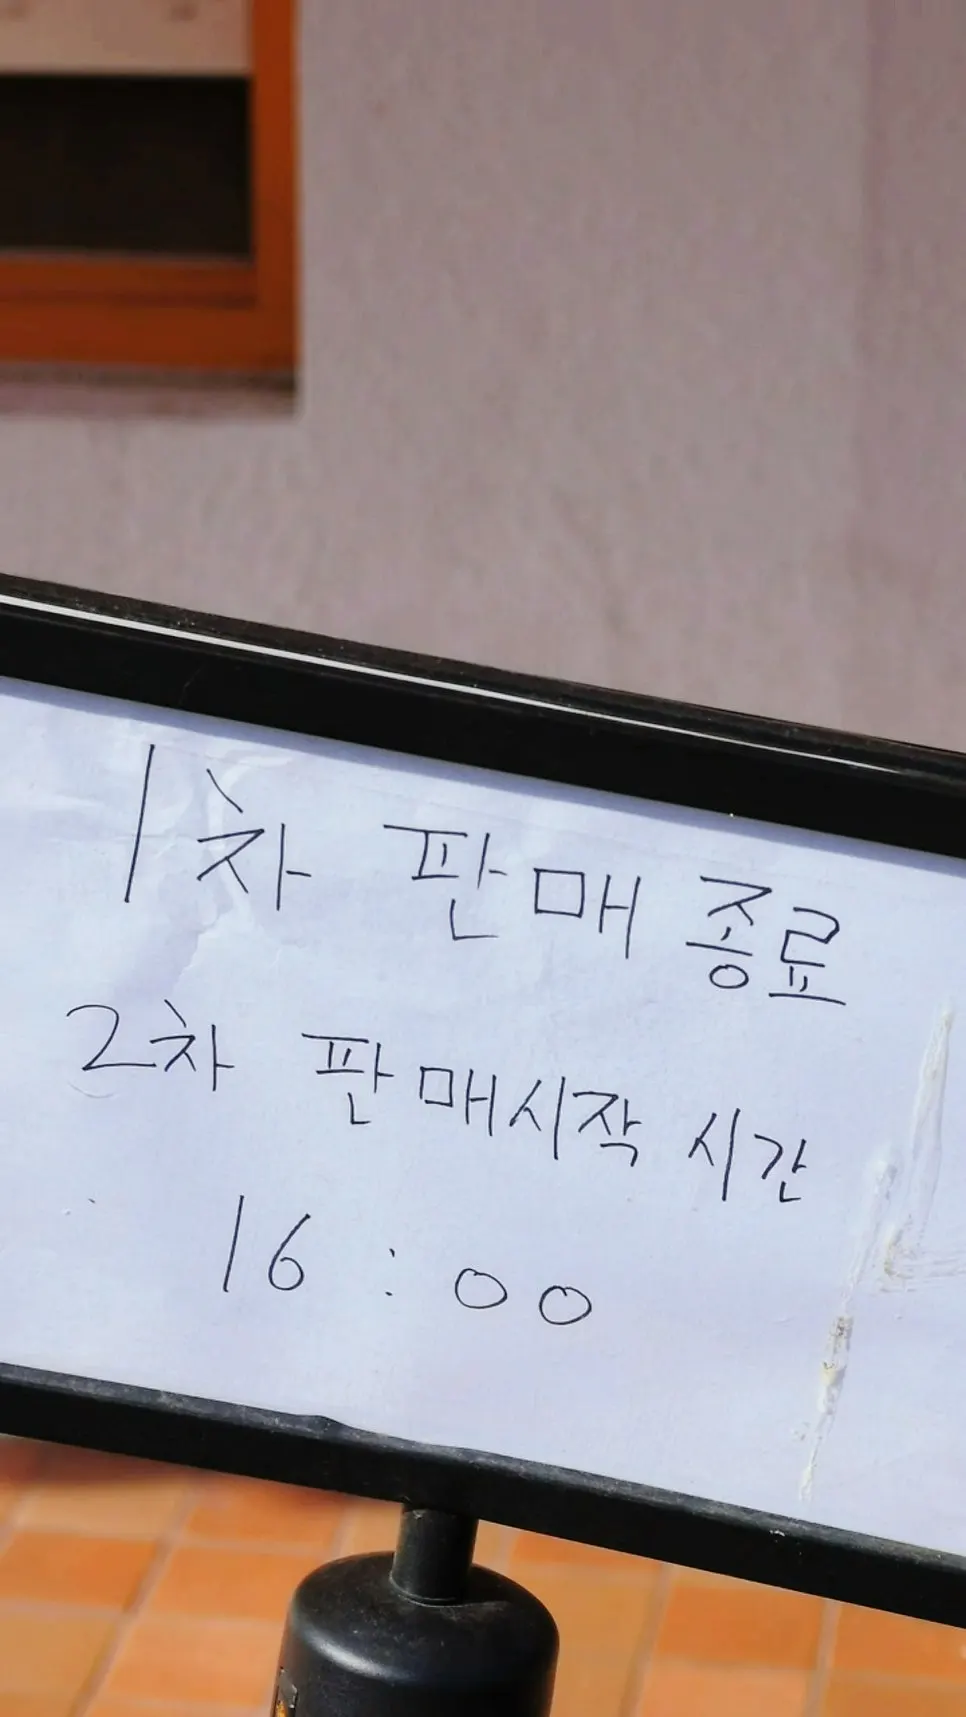 1차 판매 종료
2차 판매시작 시간
16 : 00